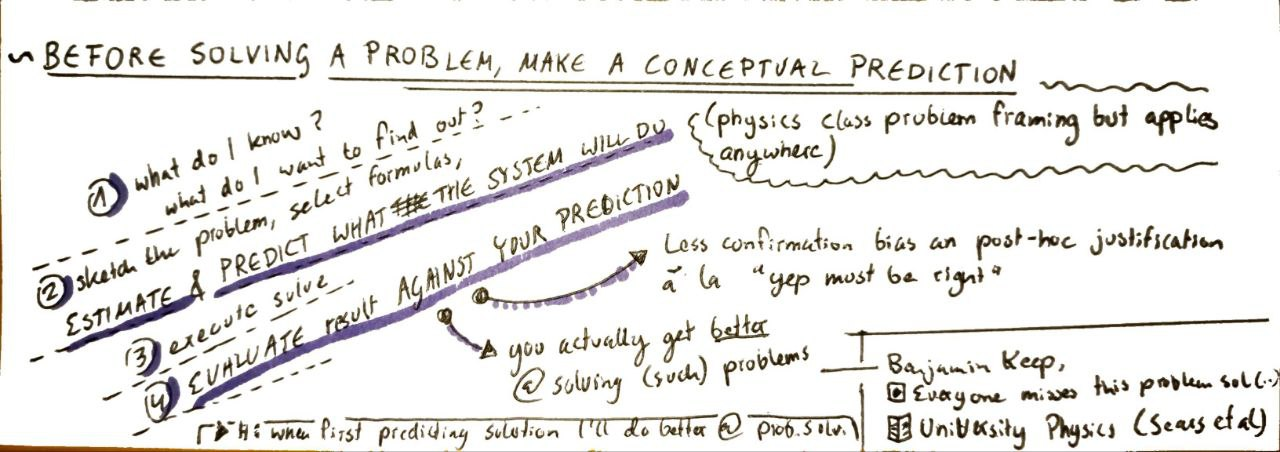 ~ BEFORE SOLVING A PROBLEM, MAKE A CONCEPTUAL PREDICTION
(physics class problem framing but applies
anywhere)
① what do I know?
what do I want to find out?
② sketch the problem, select formulas,
ESTIMATE & PREDICT WHAT THE SYSTEM WILL DO
③ execute solve
④ EVALUATE result AGAINST YOUR PREDICTION
Less confirmation bias an post-hoc justification
à la "yep must be right"
you actually get better
@ solving (such) problems
H: when first predicting solution I'll do better @ prob. solv.
Banjamin Keep,
Everyone misses this problem sol(..)
University Physics (Sears et al)